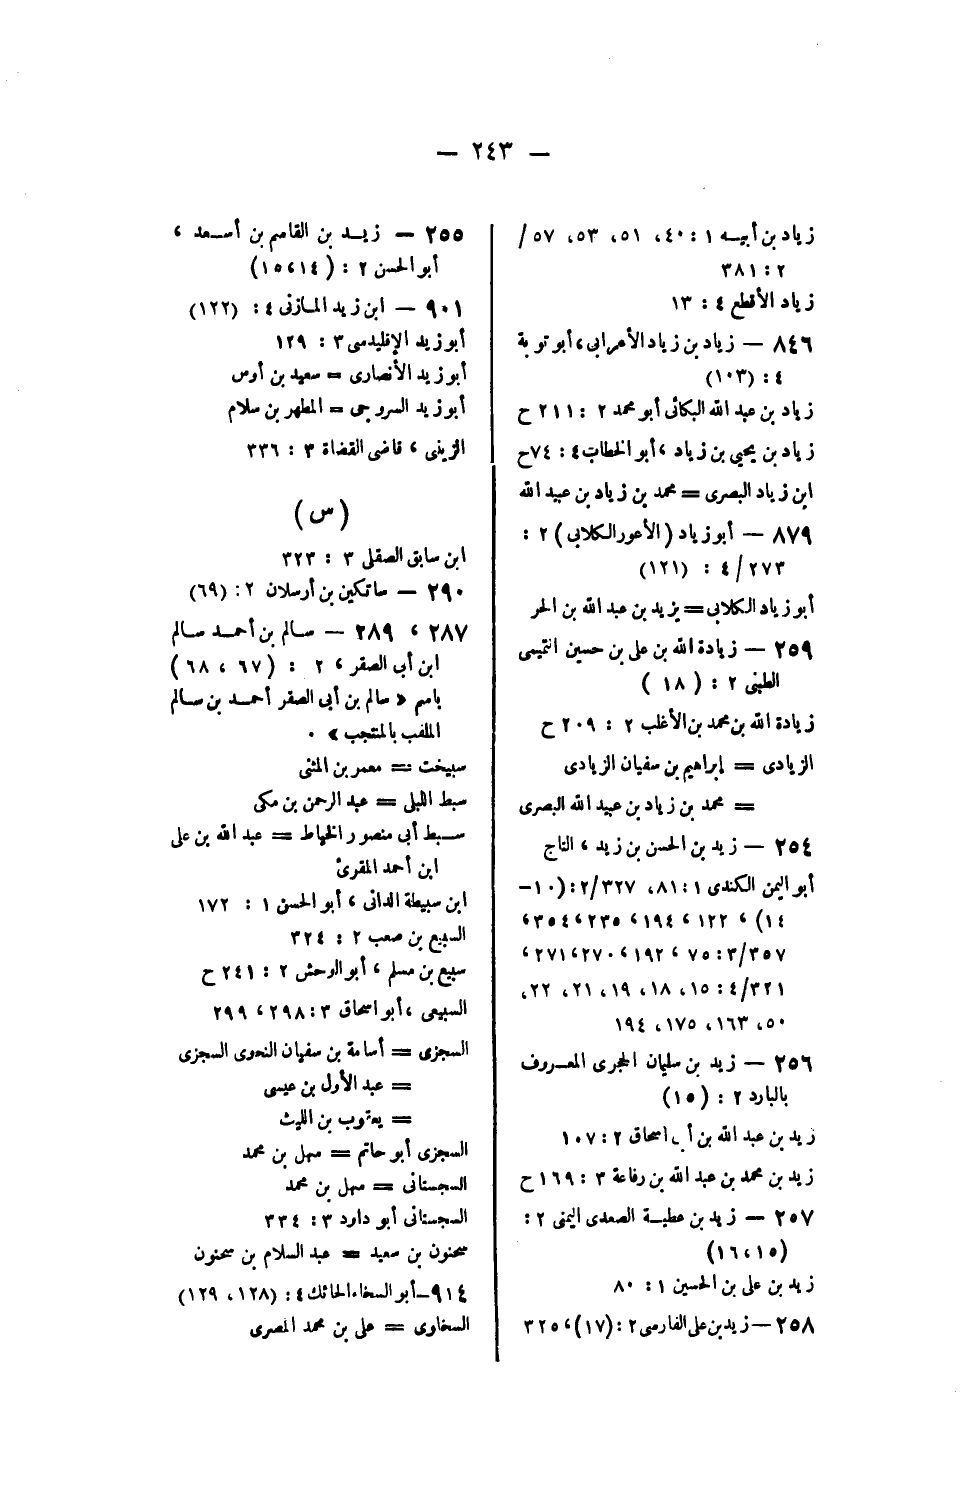 — ٢٤٣ —
زياد بن أبيـــه ١ : ٤٠، ٥١، ٥٣، ٥٧ /
٢ : ٣٨١
زياد الأقطع ٤ : ١٣
٨٤٦ — زياد بن زياد الأعرابى ، أبو توبة
٤ : (١٠٣)
زياد بن عبد الله البكائى أبو محمد ٢ : ٢١١ ح
زياد بن يحيى بن زياد ، أبو الخطاب ٤ : ٧٤ ح
ابن زياد البصرى = محمد بن زياد بن عبيد الله
٨٧٩ — أبو زياد ( الأعور الكلابى ) ٢ :
٢٧٣ / ٤ : (١٢١)
أبو زياد الكلابى = يزيد بن عبد الله بن الحر
٢٥٩ — زيادة الله بن على بن حسين التميمى
الطبنى ٢ : ( ١٨ )
زيادة الله بن محمد بن الأغلب ٢ : ٢٠٩ ح
الزيادى = إبراهيم بن سفيان الزيادى
= محمد بن زياد بن عبيد الله البصرى
٢٥٤ — زيد بن الحسن بن زيد ، التاج
أبو اليمن الكندى ١ : ٨١، ٣٢٧ / ٢ : (١٠ –
١٤) ، ١٢٢ ، ١٩٤ ، ٢٣٥ ، ٣٥٤ ،
٣٥٧ / ٣ : ٧٥ ، ١٩٢ ، ٢٧٠ ، ٢٧١ ،
٣٢١ / ٤ : ١٥، ١٨، ١٩، ٢١، ٢٢،
٥٠، ١٦٣، ١٧٥، ١٩٤
٢٥٦ — زيد بن سليمان الحجرى المعــروف
بالبارد ٢ : (١٥)
زيد بن عبد الله بن أبى اسحاق ٢ : ١٠٧
زيد بن محمد بن عبد الله بن رفاعة ٣ : ١٦٩ ح
٢٥٧ — زيد بن عطيــة الصعدى اليمنى ٢ :
(١٥، ١٦)
زيد بن على بن الحسين ١ : ٨٠
٢٥٨ — زيد بن على الفارسى ٢ : (١٧) ، ٣٢٥
٢٥٥ — زيــد بن القاسم بن أســعد ،
أبو الحسن ٢ : ( ١٤ ، ١٥ )
٩٠١ — ابن زيد المــازنى ٤ : (١٢٢)
أبو زيد الإقليدسى ٣ : ١٢٩
أبو زيد الأنصارى = سعيد بن أوس
أبو زيد السروجى = المطهر بن سلام
الزينى ، قاضى القضاة ٣ : ٣٣٦
( س )
ابن سابق الصقلى ٣ : ٣٢٣
٢٩٠ — ساتكين بن أرسلان ٢ : (٦٩)
٢٨٧ ، ٢٨٩ — ســالم بن أحمــد ســالم
ابن أبى الصقر ، ٢ : ( ٦٧ ، ٦٨ )
باسم « سالم بن أبى الصقر أحمــد بن ســالم
الملقب بالمنتجب » .
سبيخت = معمر بن المثنى
سبط اللبلى = عبد الرحمن بن مكى
ســبط أبى منصور الخياط = عبد الله بن على
ابن أحمد المقرئ
ابن سبيطة الدانى ، أبو الحسن ١ : ١٧٢
السبيع بن صعب ٢ : ٣٢٤
سبيع بن مسلم ، أبو الوحش ٢ : ٢٤١ ح
السبيعى ، أبو اسحاق ٣ : ٢٩٨ ، ٢٩٩
السجزى = أسامة بن سفيان النحوى السجزى
= عبد الأول بن عيسى
= يعقوب بن الليث
السجزى أبو حاتم = سهل بن محمد
السجستانى = سهل بن محمد
السجستانى أبو داود ٣ : ٣٣٤
سحنون بن سعيد = عبد السلام بن سحنون
٩١٤ – أبو السخاء الحائك ٤ : (١٢٨، ١٢٩)
السخاوى = على بن محمد المصرى